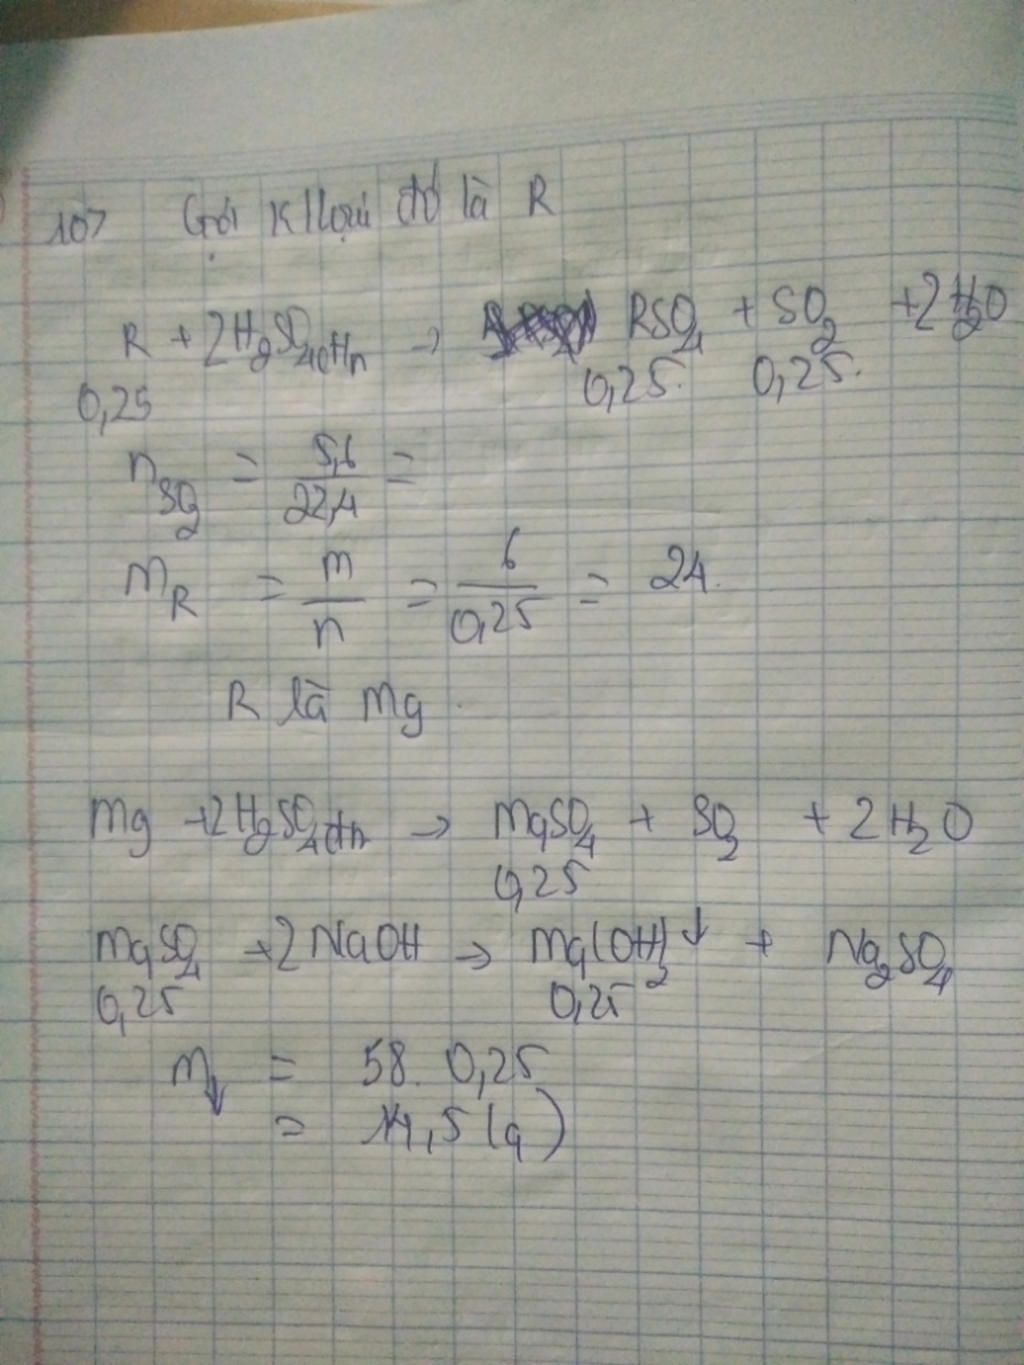 10> Gọi K loại đó là R
R + 2H2SO4đn → RSO4 + SO2 + 2H2O
0,25 0,25. 0,25.
nSO2 = 5,6/22,4 =
MR = m/n = 6/0,25 = 24.
R là Mg.
Mg + 2H2SO4đn → MgSO4 + SO2 + 2H2O
0,25
MgSO4 + 2NaOH → Mg(OH)2↓ + Na2SO4
0,25 0,25
m↓ = 58. 0,25
= 14,5 (g)